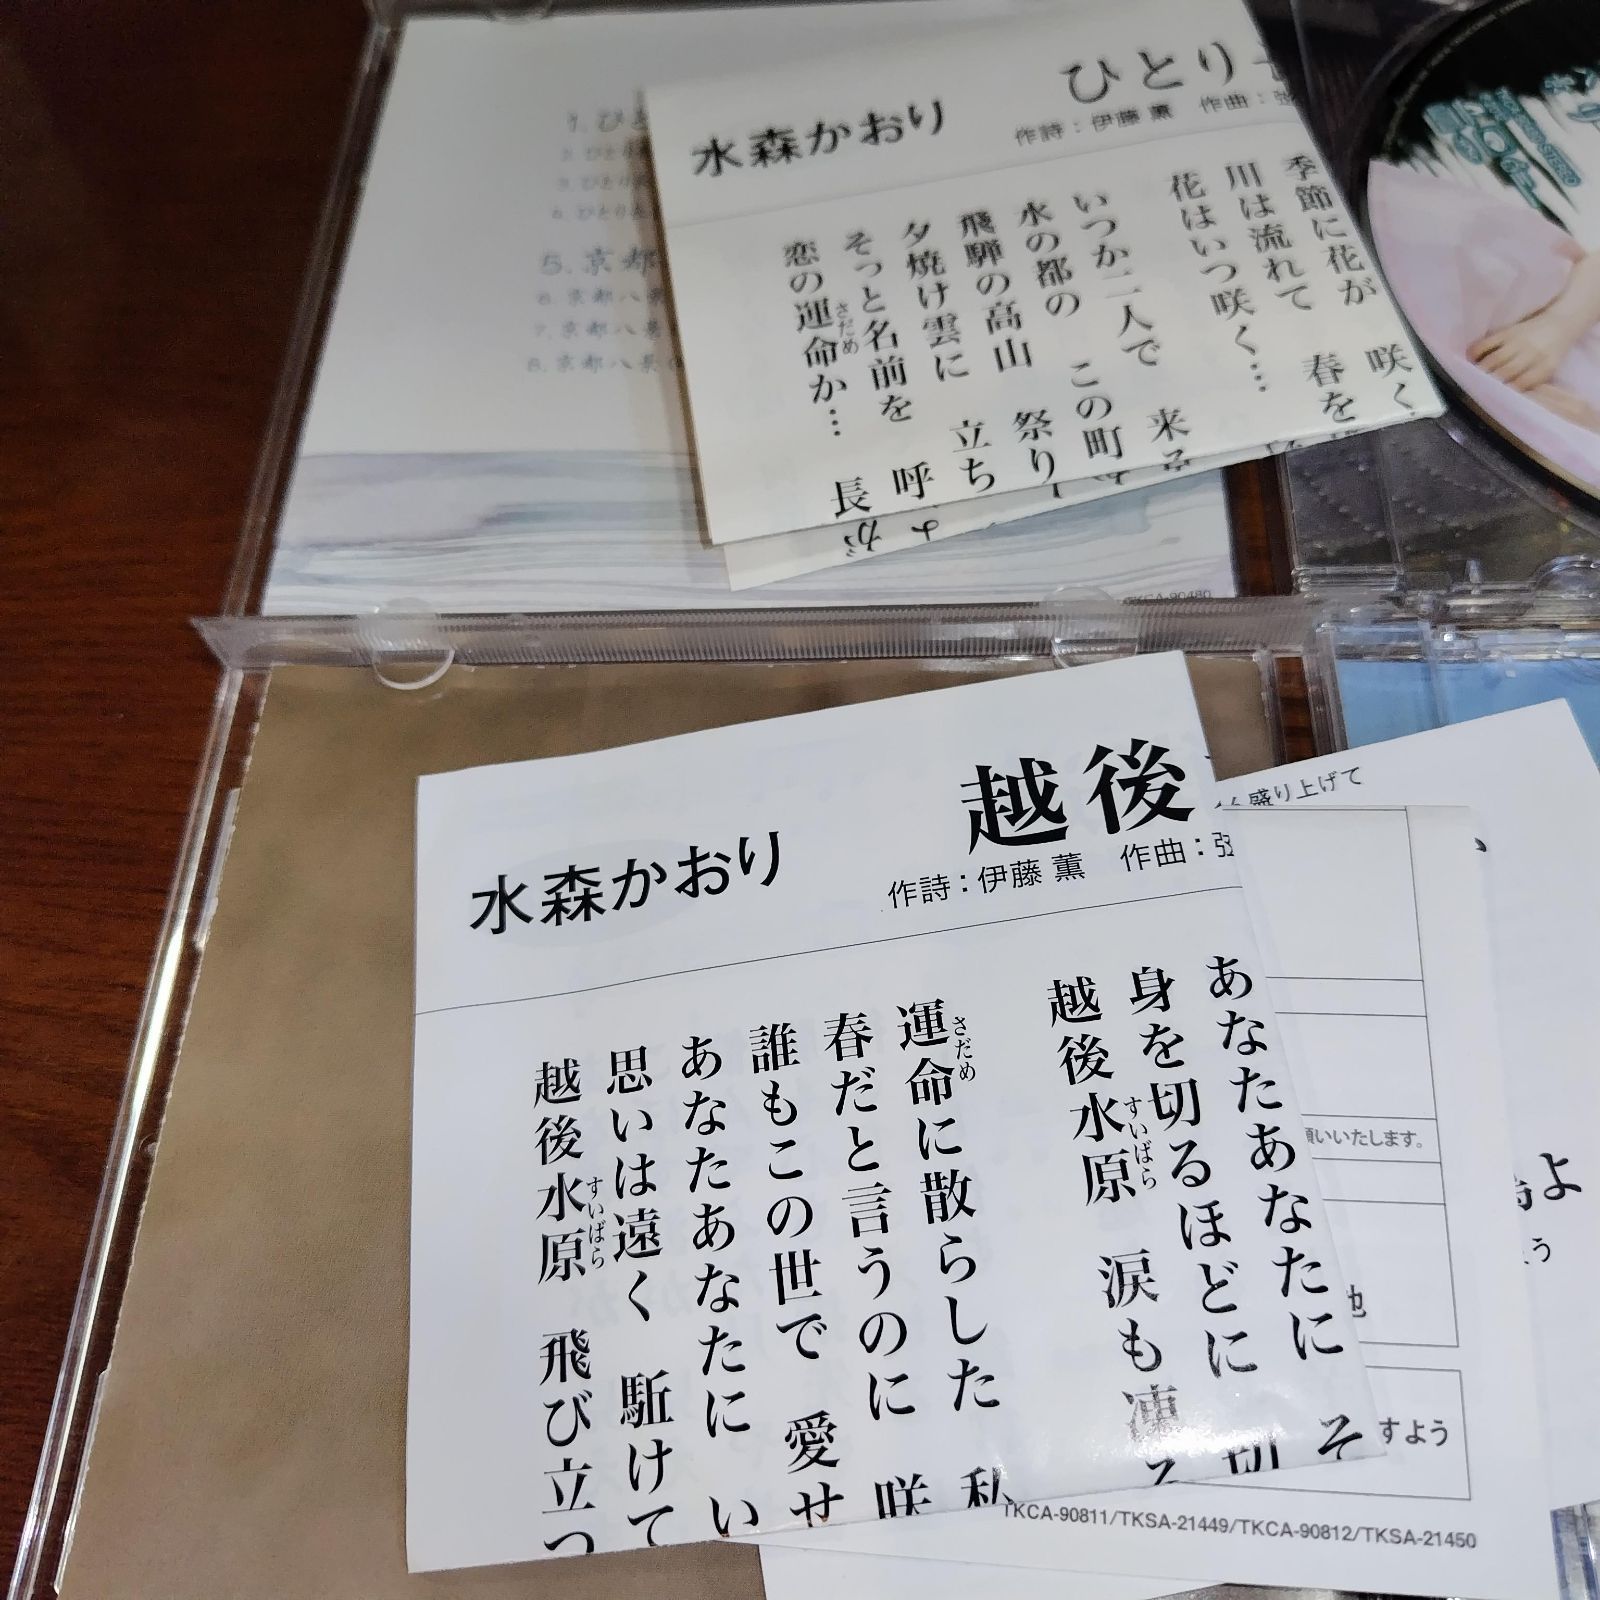 水森かおり
ひとり
作詩：伊藤 薫　作曲：弦
季節に花が　咲く
川は流れて　春を
花はいつ咲く…
いつか二人で　来る
水の都の　この町
飛騨の高山　祭り
夕焼け雲に　立ち
そっと名前を　呼
恋の運命か…　長
さだめ
5. 京都
6. 京都八景
7. 京都八景
8. 京都八景
TKCA-90480
水森かおり
越後
作詩：伊藤 薫　作曲：弦
あなたあなたに　そ
身を切るほどに　切
越後水原　涙も凍る
すいばら
運命に散らした　私
さだめ
春だと言うのに　咲
誰もこの世で　愛せ
あなたあなたに　い
思いは遠く　駈けて
越後水原　飛び立つ
すいばら
盛り上げて
願いいたします。
すよう
TKCA-90811/TKSA-21449/TKCA-90812/TKSA-21450